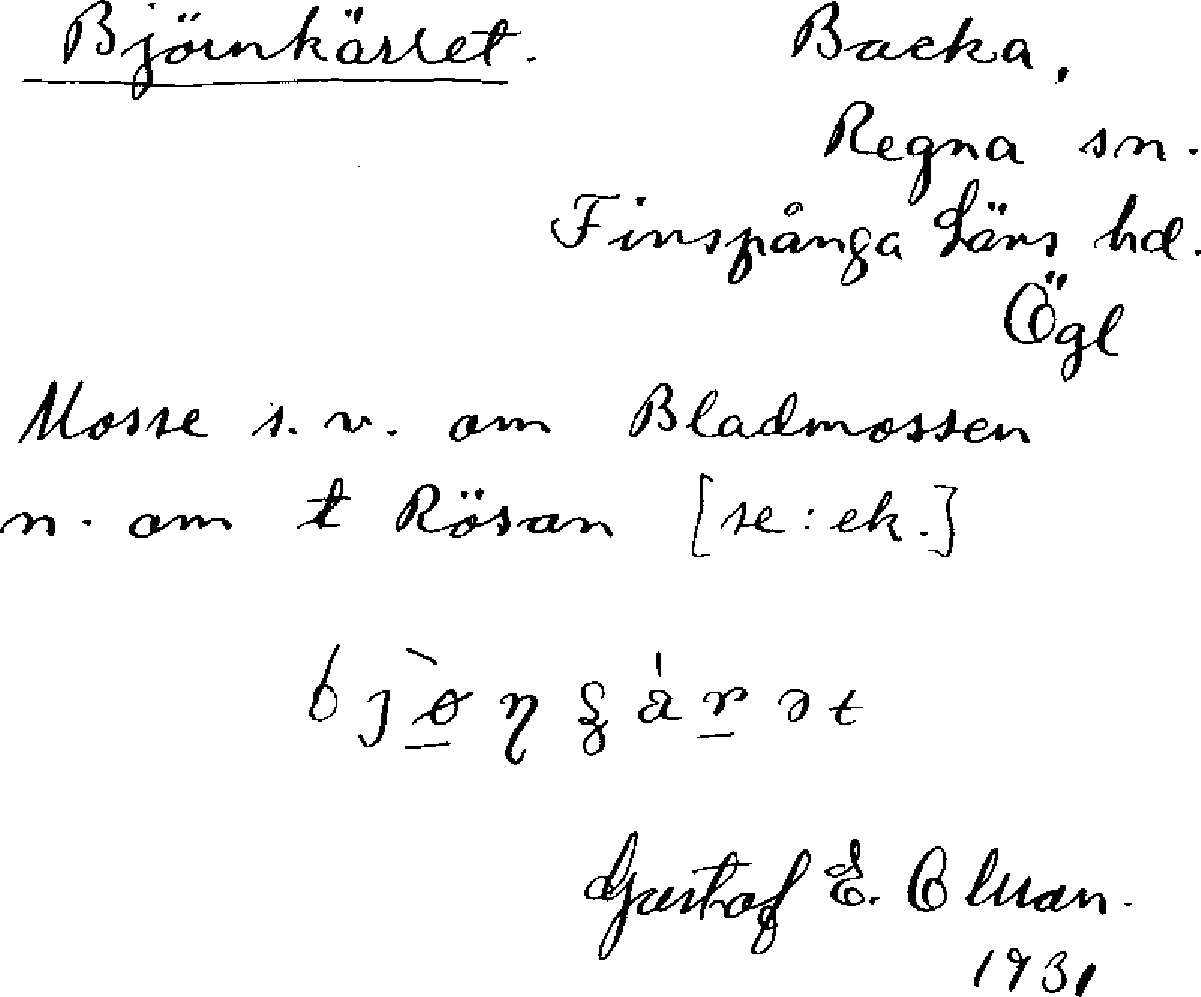 Björnkärret. Backa,
Regna sn.
Finspånga läns hd.
Ögl
Mosse s.v. om Bladmossen
n. om t Rösan [se: ek.]
Gustaf E.
1931